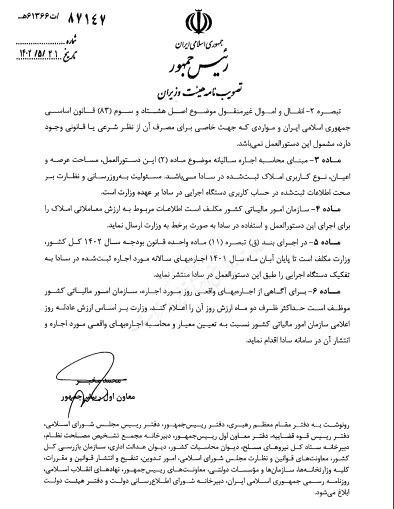 ۸۷۱۴۷ /ت۶۱۳۶۶هـ
شماره
۱۴۰۲/۵/۲۱
تاریخ
جمهوری اسلامی ایران
رئیس جمهور
تصویب نامه هیئت وزیران
تبصره ۲- انفال و اموال غیرمنقول موضوع اصل هشتاد و سوم (۸۳) قانون اساسی
جمهوری اسلامی ایران و مواردی که جهت خاصی برای مصرف آن از نظر شرعی یا قانونی وجود
دارد، مشمول این دستورالعمل نمی‌باشد.
ماده ۳- مبنای محاسبه اجاره سالیانه موضوع ماده (۲) این دستورالعمل، مساحت عرصه و
اعیان، نوع کاربری املاک ثبت‌شده در سادا می‌باشد. مسئولیت به‌روزرسانی و نظارت بر
صحت اطلاعات ثبت‌شده در حساب کاربری دستگاه اجرایی در سادا بر عهده وزارت است.
ماده ۴- سازمان امور مالیاتی کشور مکلف است اطلاعات مربوط به ارزش معاملاتی املاک را
برای اجرای این دستورالعمل و استفاده در سادا به صورت برخط به وزارت ارسال نماید.
ماده ۵- در اجرای بند (ق) تبصره (۱۱) ماده واحده قانون بودجه سال ۱۴۰۲ کل کشور،
وزارت مکلف است تا پایان آبان ماه سال ۱۴۰۱ اجاره‌بهای سالانه مورد اجاره ثبت‌شده در سادا به
تفکیک دستگاه اجرایی را طبق این دستورالعمل در سادا منتشر نماید.
ماده ۶- برای آگاهی از اجاره‌بهای واقعی روز مورد اجاره، سازمان امور مالیاتی کشور
موظف است حداکثر ظرف دو ماه ارزش روز آن را اعلام کند. وزارت بر اساس ارزش عادله روز
اعلامی سازمان امور مالیاتی کشور نسبت به تعیین معیار و محاسبه اجاره‌بهای واقعی مورد اجاره و
انتشار آن در سامانه سادا اقدام نماید.
محمد مخبر
معاون اول رییس‌جمهور
رونوشت به دفتر مقام معظم رهبری، دفتر رییس‌جمهور، دفتر رییس مجلس شورای اسلامی،
دفتر رییس قوه قضاییه، دفتر معاون اول رییس‌جمهور، دبیرخانه مجمع تشخیص مصلحت نظام،
دبیرخانه ستاد کل نیروهای مسلح، دیوان محاسبات کشور، دیوان عدالت اداری، سازمان بازرسی کل
کشور، معاونت‌های قوانین و نظارت مجلس شورای اسلامی، امور تدوین، تنقیح و انتشار قوانین و مقررات،
کلیه وزارتخانه‌ها، سازمان‌ها و مؤسسات دولتی، معاونت‌های رییس‌جمهور، نهادهای انقلاب اسلامی،
روزنامه رسمی جمهوری اسلامی ایران، دبیرخانه شورای اطلاع‌رسانی دولت و دفتر هیئت دولت
ابلاغ می‌شود.